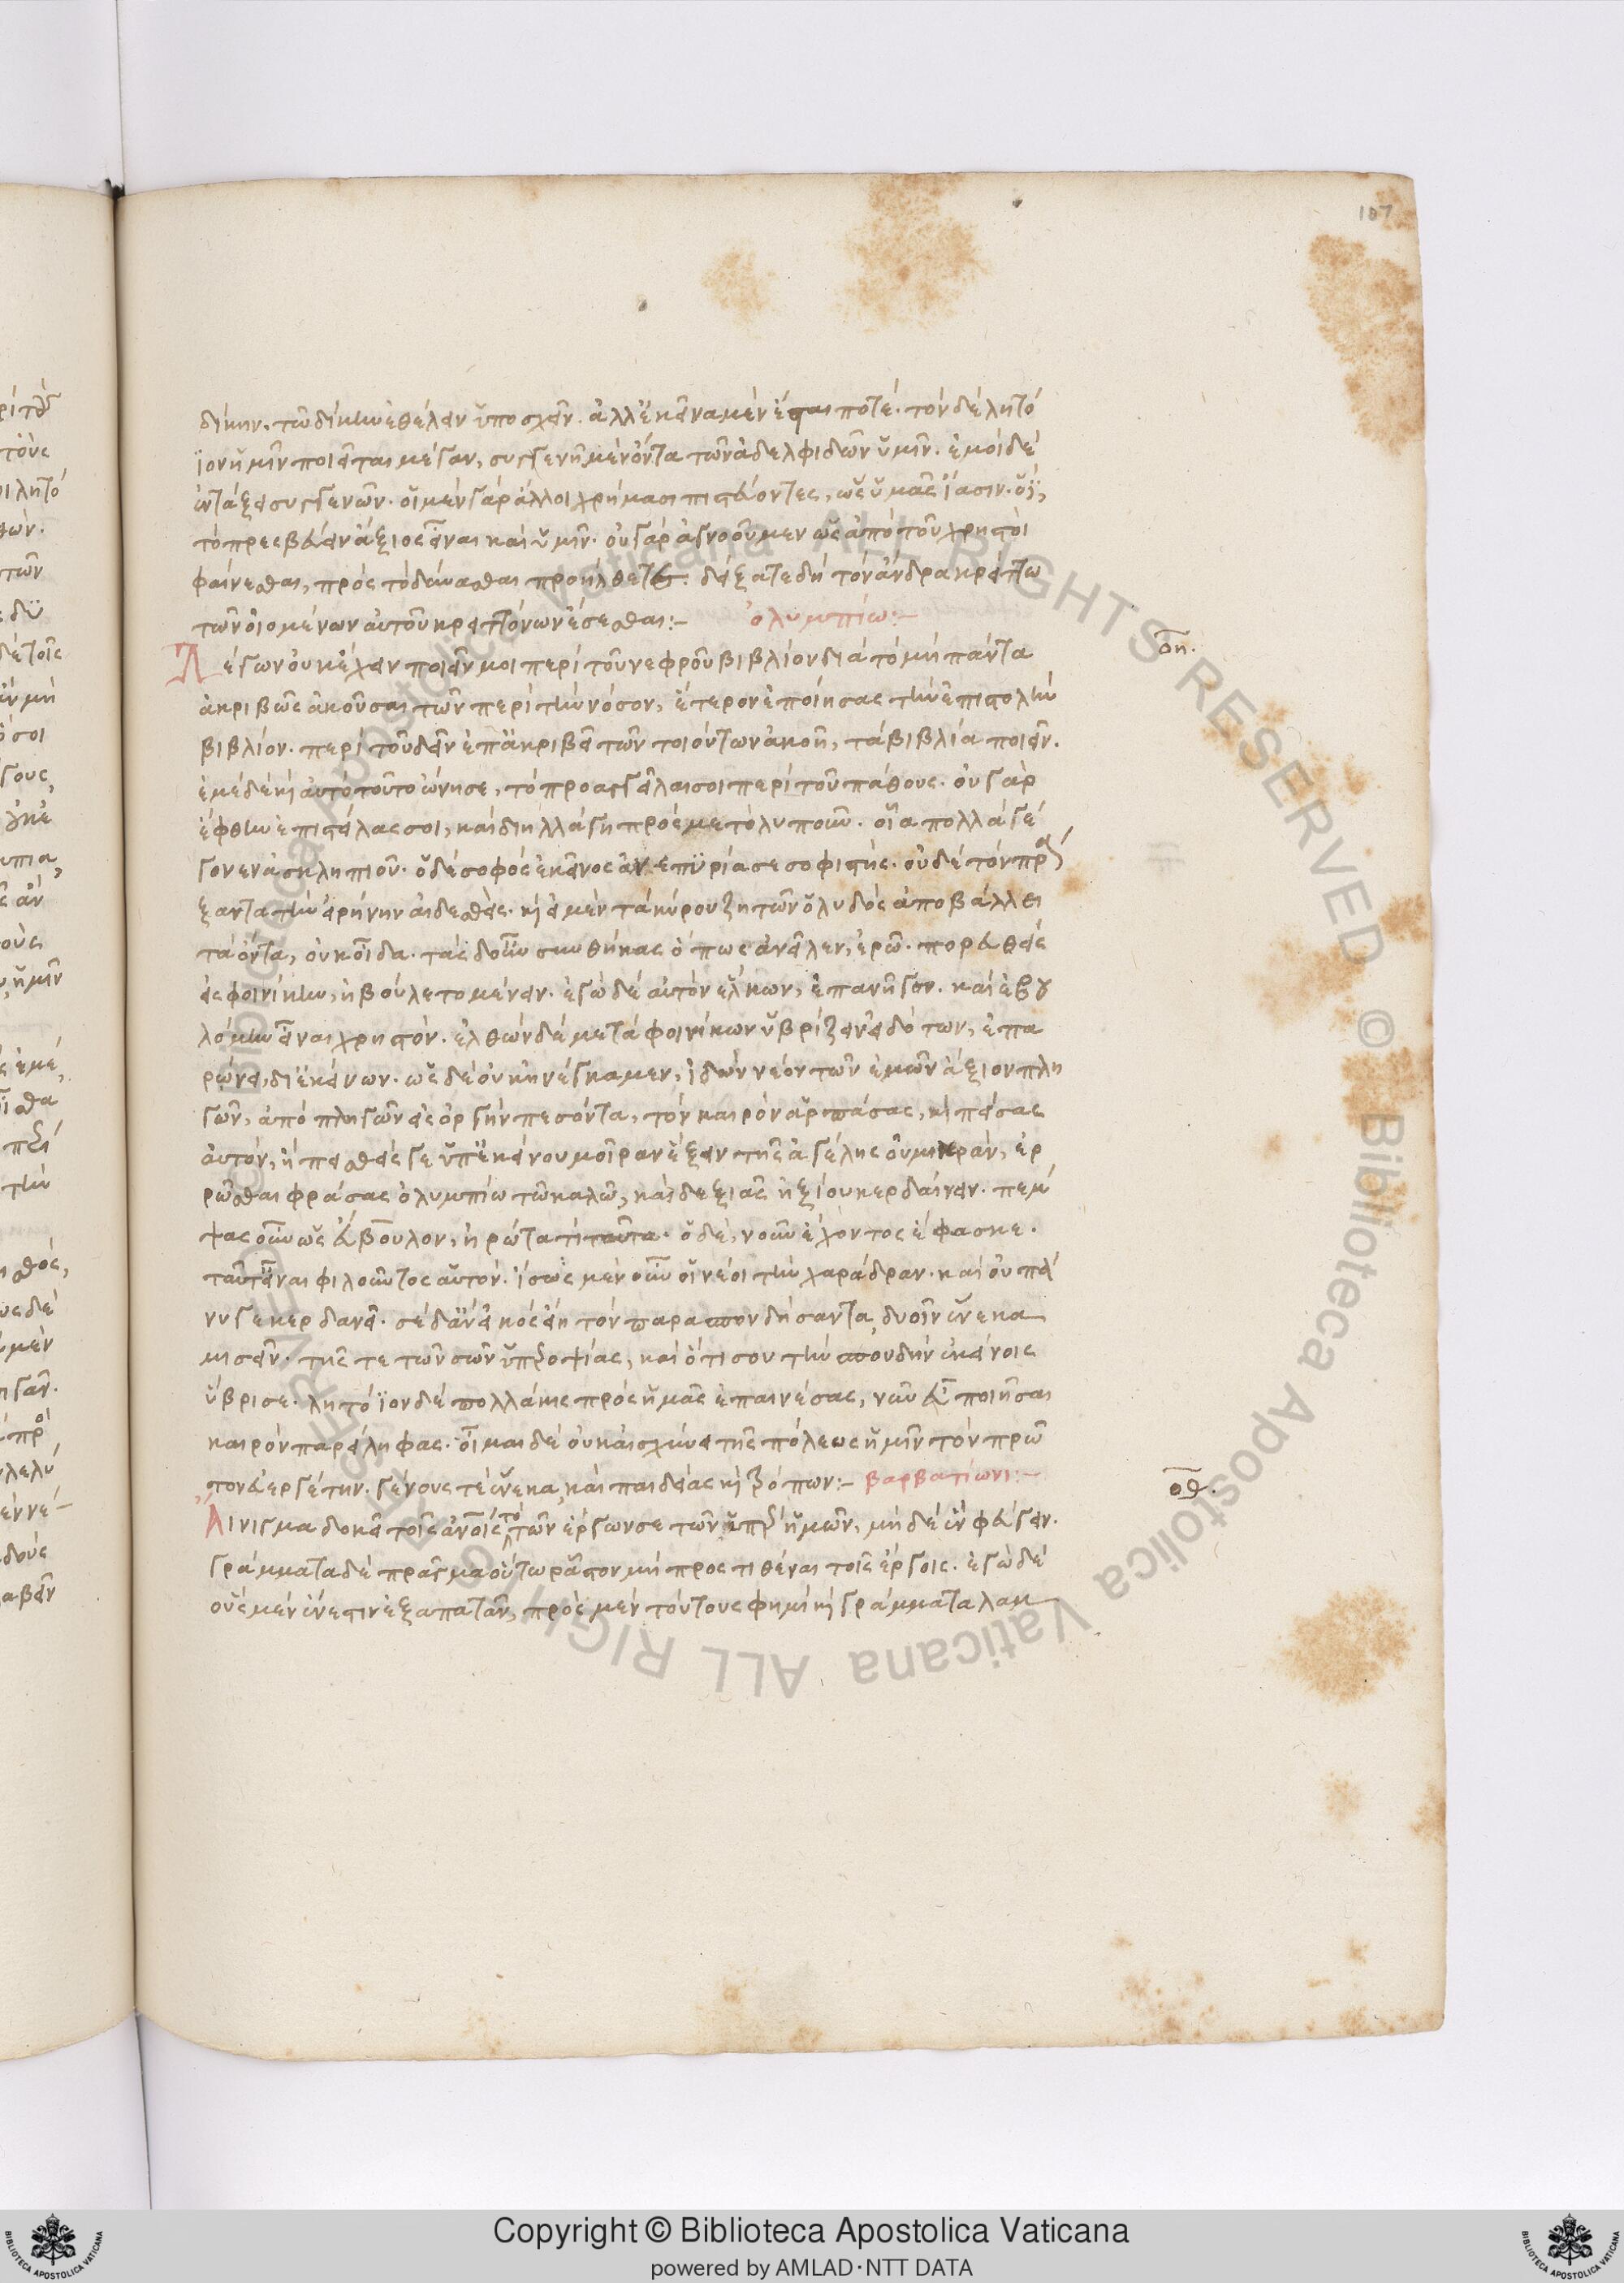 107
δίκην, τῶ δίκην ἐθέλειν ὑποσχεῖν. ἀλλ' ἐκεῖνα μὲν ἔσται ποτέ. τὸν δὲ λητό
ϊον ἡμῖν ποιεῖται μέγαν, συγγενῆ μὲν ὄντα τῶν ἀδελφιδῶν ὑμῖν. ἐμοὶ δὲ
ἐν τάξει συγγενῶν. οἱ μὲν γὰρ ἄλλοι χρήμασι πιστεύοντες, ὡς ὑμᾶς ἴασιν. ὁ δὲ,
τὸ πρεσβεύειν ἄξιος εἶναι καὶ ὑμῖν. οὐ γὰρ ἀγνοοῦμεν ὡς ἀπὸ τοῦ χρηστοὶ
φαίνεσθαι, πρὸς τὸ δύνασθαι προήλθετε. δέξασθε δὴ τὸν ἄνδρα κρείττω
τῶν οἰομένων αὐτοῦ κρειττόνων ἔσεσθαι:– ὀλυμπίω:–
οη.
Λέγων οὐκ ἔχειν ποιεῖν μοι περὶ τοῦ νεφροῦ βιβλίον διὰ τὸ μὴ πάντα
ἀκριβῶς ἀκοῦσαι τῶν περὶ τὴν νόσον, ἕτερον ἐποίησας τὴν ἐπιστολὴν
βιβλίον. περὶ τοῦ δεῖν ἐπ' ἀκριβεῖ τῶν τοιούτων ἀκοῇ, τὰ βιβλία ποιεῖν.
ἐμὲ δὲ καὶ αὐτὸ τοῦτο ὤνησε, τὸ προσαγγεῖλαι σοι περὶ τοῦ πάθους. οὐ γὰρ
ἔφθην ἐπιστείλας σοι, καὶ διηλλάγη πρός με τὸ λυποῦν. οἷα πολλὰ γέ
γονεν ἀσκληπιοῦ. ὁ δὲ σοφὸς ἐκεῖνος
ξαντα τὴν εἰρήνην αἰδεσθείς. καὶ εἰ μὲν τὰ κύρου ζητῶν ὁ λυδὸς ἀποβάλλει
τὰ ὄντα, οὐκ οἶδα. τὰς δ' οὖν συνθήκας ὅπως ἀνεῖλεν, ἐρῶ. πορευθεὶς
εἰς φοινίκην, ἠβούλετο μένειν. ἐγὼ δὲ αὐτὸν ἕλκων, ἐπανῆγον. καὶ ἐβου
λόμην εἶναι χρηστόν. ἐλθὼν δὲ μετὰ φοινίκων ὑβρίζειν εἰδότων, ἐπα
ρώνει, δι' ἐκείνων. ὡς δὲ οὐκ ἠνέγκαμεν, ἰδὼν νέον τῶν ἐμῶν ἄξιον πλη
γῶν, ἀπὸ πληγῶν εἰς ὀργὴν πεσόντα, τὸν καιρὸν ἁρπάσας, καὶ πείσας
αὐτὸν, ἢ πεισθείς γε ὑπ' ἐκείνου μοῖραν ἕξειν τῆς ἀγέλης οὐ μικρὰν, ἐρ
ρῶσθαι φράσας ὀλυμπίω τῶ καλῶ, καὶ δεξιᾶς ἠξίου κερδαίνειν. πέμ
ψας οὖν ὡς εὔβουλον, ἠρώτα τί ταῦτα. ὁ δὲ, νοῦν ἔχοντος ἔφασκε.
ταῦτ' εἶναι φιλοῦντος αὐτόν. ἴσως μὲν οὖν οἱ νέοι τὴν χαράδραν. καὶ οὐ πά
νυ γε κερδανεῖ. σὲ δ' ἂν εἰκὸς εἴη τὸν παρασπονδήσαντα, δυοῖν ἕνεκα
μισεῖν. τῆς τε τῶν σῶν ὑπεροψίας, καὶ ὅτι σου τὴν σπουδὴν ἐκείνοις
ὕβρισε. λητόϊον δὲ πολλάκις πρὸς ἡμᾶς ἐπαινέσας, νῦν εὖ ποιῆσαι
καιρὸν παρείληφας. οἶμαι δὲ οὐκ αἰσχύνει τῆς πόλεως ἡμῖν τὸν πρῶ
τον εὐεργέτην. γένους τε ἕνεκα, καὶ παιδείας καὶ τρόπων:– βαρβατίωνι:–
οθ.
Αἴνιγμα δοκεῖ τοῖς ἀνοις τὸ τῶν ἔργων σε τῶν ὑπὲρ ἡμῶν, μηδὲ ἓν φεύγειν.
γράμματα δὲ πρᾶγμα οὕτω ρᾶστον μὴ προστιθέναι τοῖς ἔργοις. ἐγὼ δὲ
οὓς μὲν ἔνεστιν ἐξαπατᾶν, πρὸς μὲν τούτους φημὶ καὶ γράμματα λαμ
Copyright © Biblioteca Apostolica Vaticana
powered by AMLAD·NTT DATA